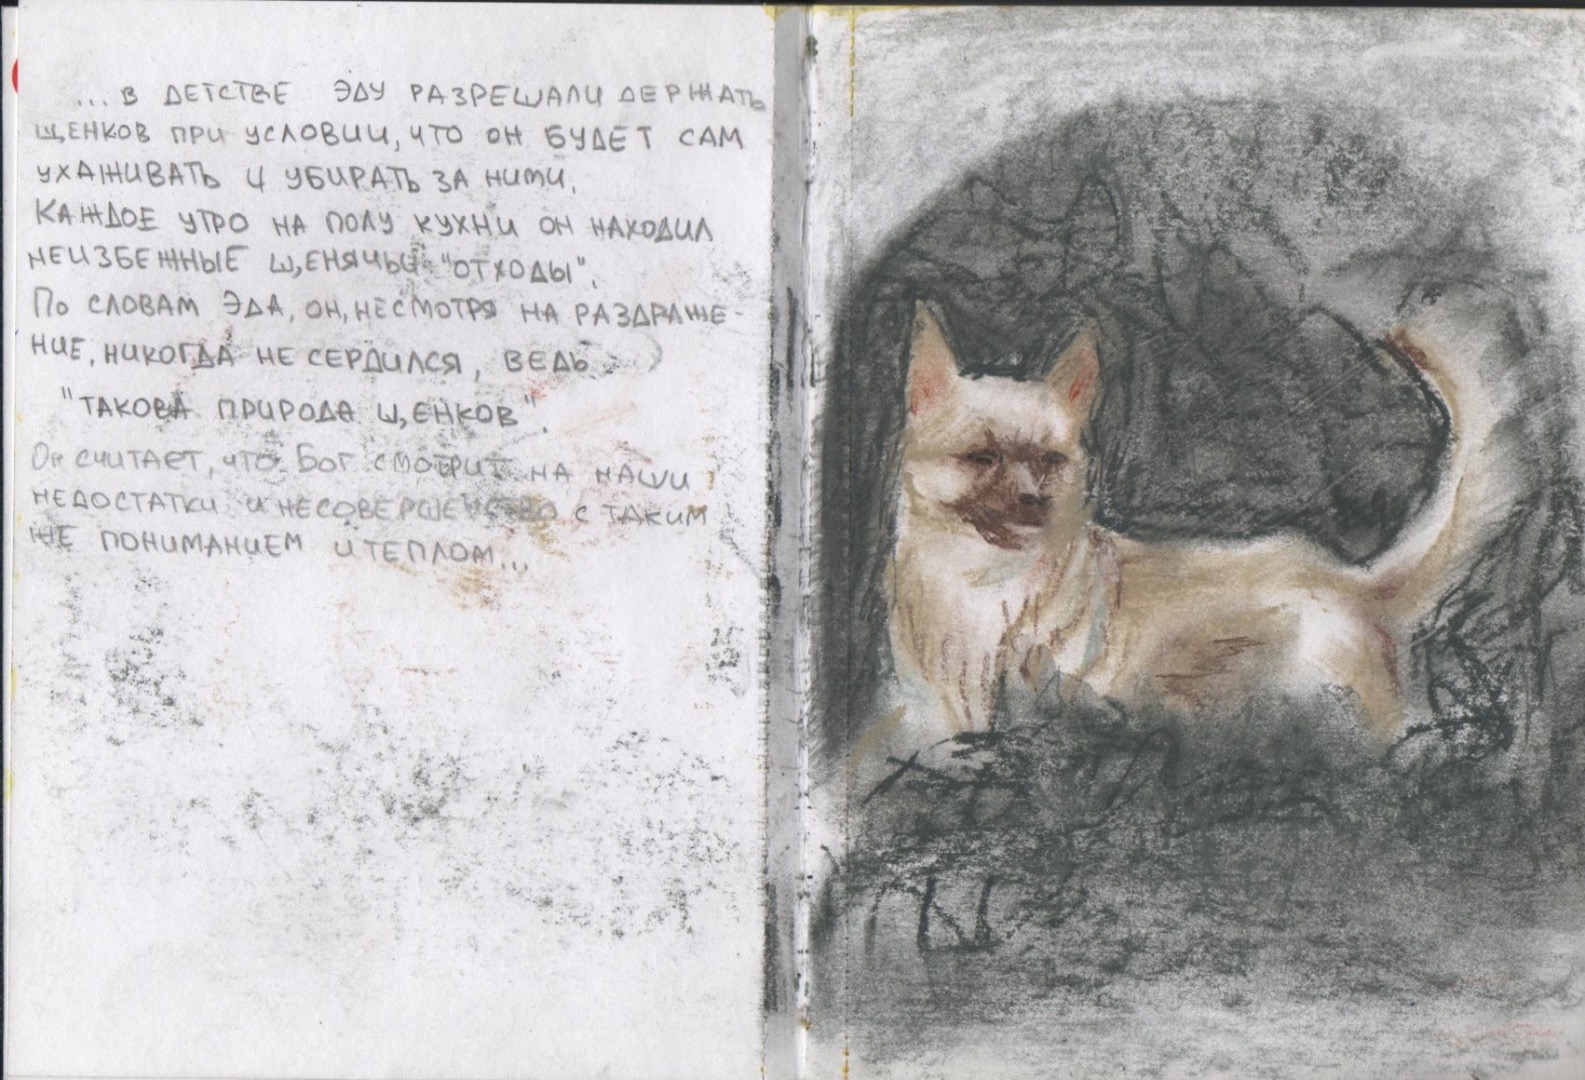 ...В ДЕТСТВЕ ЭДУ РАЗРЕШАЛИ ДЕРЖАТЬ
ЩЕНКОВ ПРИ УСЛОВИИ, ЧТО ОН БУДЕТ САМ
УХАЖИВАТЬ И УБИРАТЬ ЗА НИМИ.
КАЖДОЕ УТРО НА ПОЛУ КУХНИ ОН НАХОДИЛ
НЕИЗБЕЖНЫЕ ЩЕНЯЧЬИ "ОТХОДЫ".
ПО СЛОВАМ ЭДА, ОН, НЕСМОТРЯ НА РАЗДРАЖЕ-
НИЕ, НИКОГДА НЕ СЕРДИЛСЯ, ВЕДЬ
"ТАКОВА ПРИРОДА ЩЕНКОВ".
ОН СЧИТАЕТ, ЧТО БОГ СМОТРИТ НА НАШИ
НЕДОСТАТКИ И НЕСОВЕРШЕНСТВО С ТАКИМ
ЖЕ ПОНИМАНИЕМ И ТЕПЛОМ...